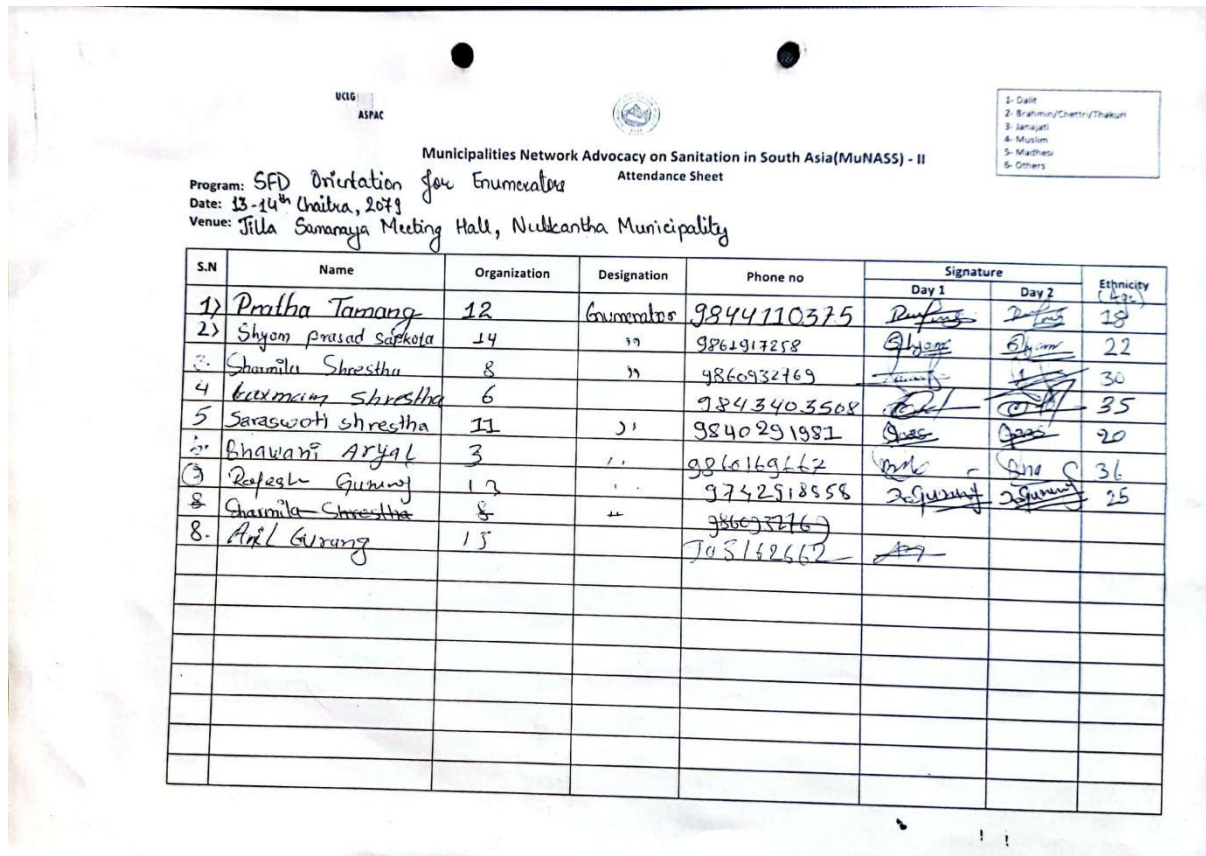 UCLG
ASPAC
1- Dalit
2- Brahmin/Chettri/Thakuri
3- Janajati
4- Muslim
5- Madhesi
6- Others
Municipalities Network Advocacy on Sanitation in South Asia(MuNASS) - II
Attendance Sheet
Program: SFD Orientation for Enumerators
Date: 13-14th Chaitra, 2079
Venue: Jilla Samanaya Meeting Hall, Municipality
S.N Name Organization Designation Phone no Signature Ethnicity
Day 1 Day 2 (Age)
1) Pratha Tamang 12 Enumerators 9844110375 18
2) Shyam prasad Sapkota 14 " 9861917258 Shyam Shyam 22
3. Sharmila Shrestha 8 " 9860932769 30
4 Shrestha 6 9843403508 35
5 Saraswoti shrestha 11 " 9840291981 20
6. Bhawani Aryal 3 " 36
7 Rajesh Gurung 13 " 9742918558 Gurung Gurung 25
8 Sharmila Shrestha 8 " 9860932769
8. Anil Gurung 15